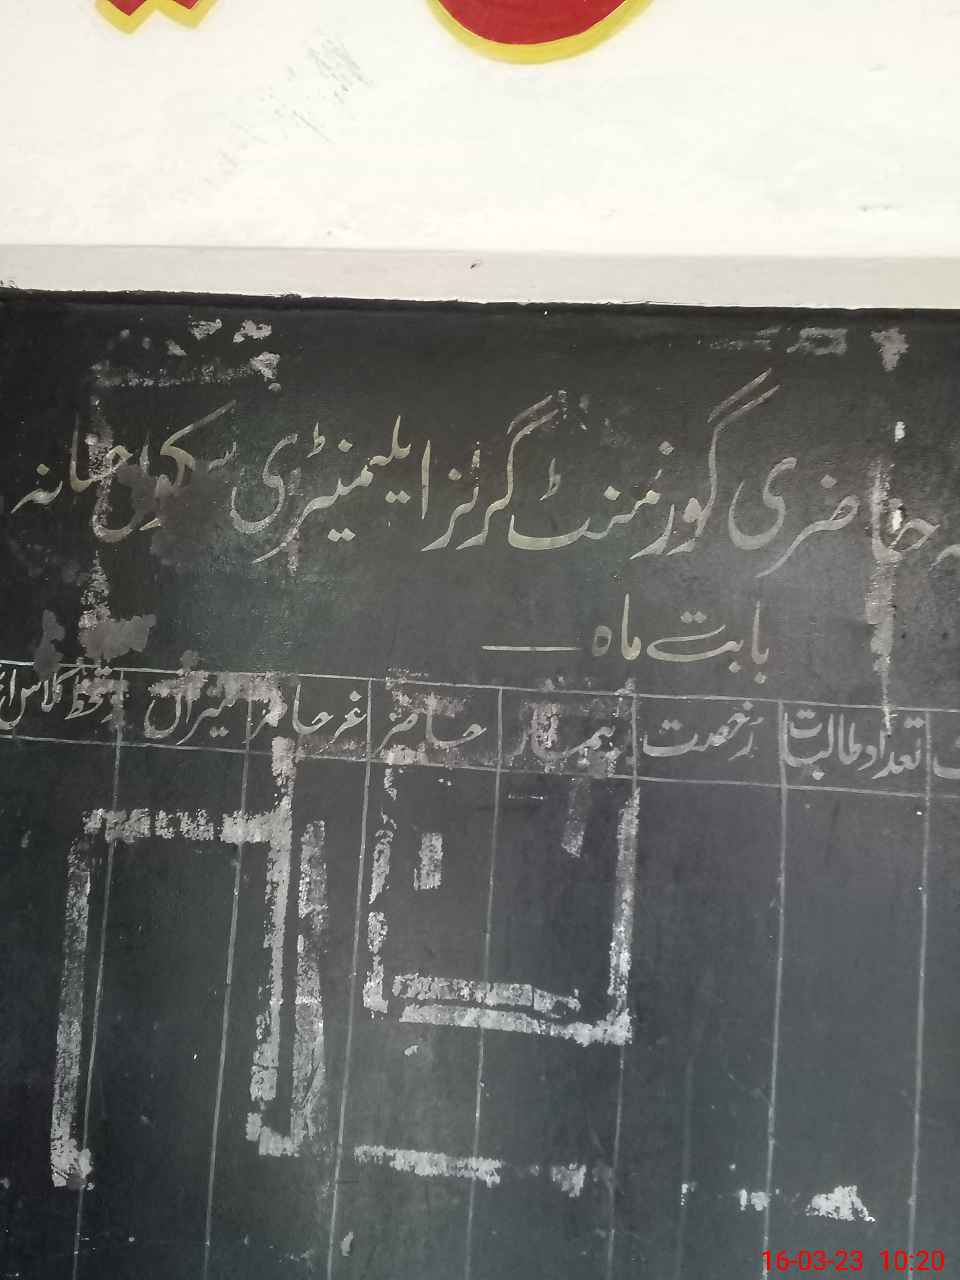 حاضری گورنمنٹ گرلز ایلیمنٹری سکول جسانہ
بابت ماہ
تعداد طالبات رخصت بیمار حاضر غیر حاضر میزان دستخط کلاس
16-03-23 10:20